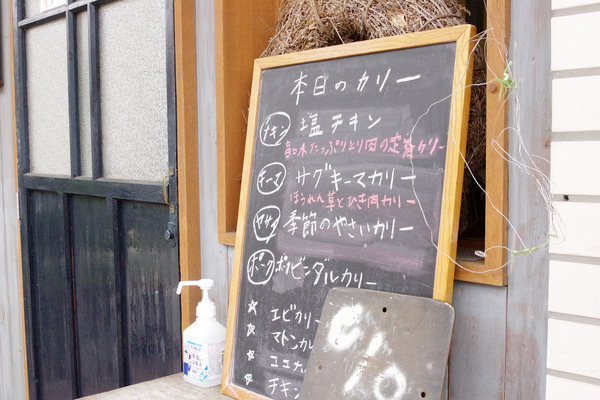 本日のカリー
チキン 塩チキン
旨味たっぷりとり肉の定番カリー
キーマ サグキーマカリー
ほうれん草とひき肉カリー
ヤサイ 季節のやさいカリー
ポーク ポークビンダルカリー
☆ エビカリー
☆ マトンカレ
☆ ココナ
☆ チキン